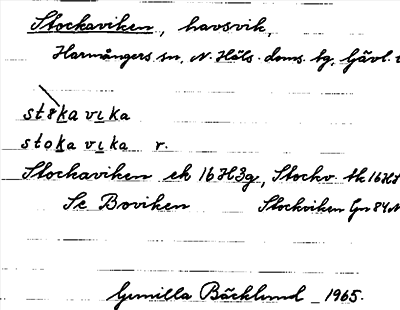 Stockaviken, havsvik,
Harmångers sn, N. Häls. doms. tg, Gävl.
stoka vika
stoka vika r.
Stockaviken ek 16H3g, Stockv. tk 16H
Se Boviken Stockviken Gs 84
Gunilla Bäcklund 1965.